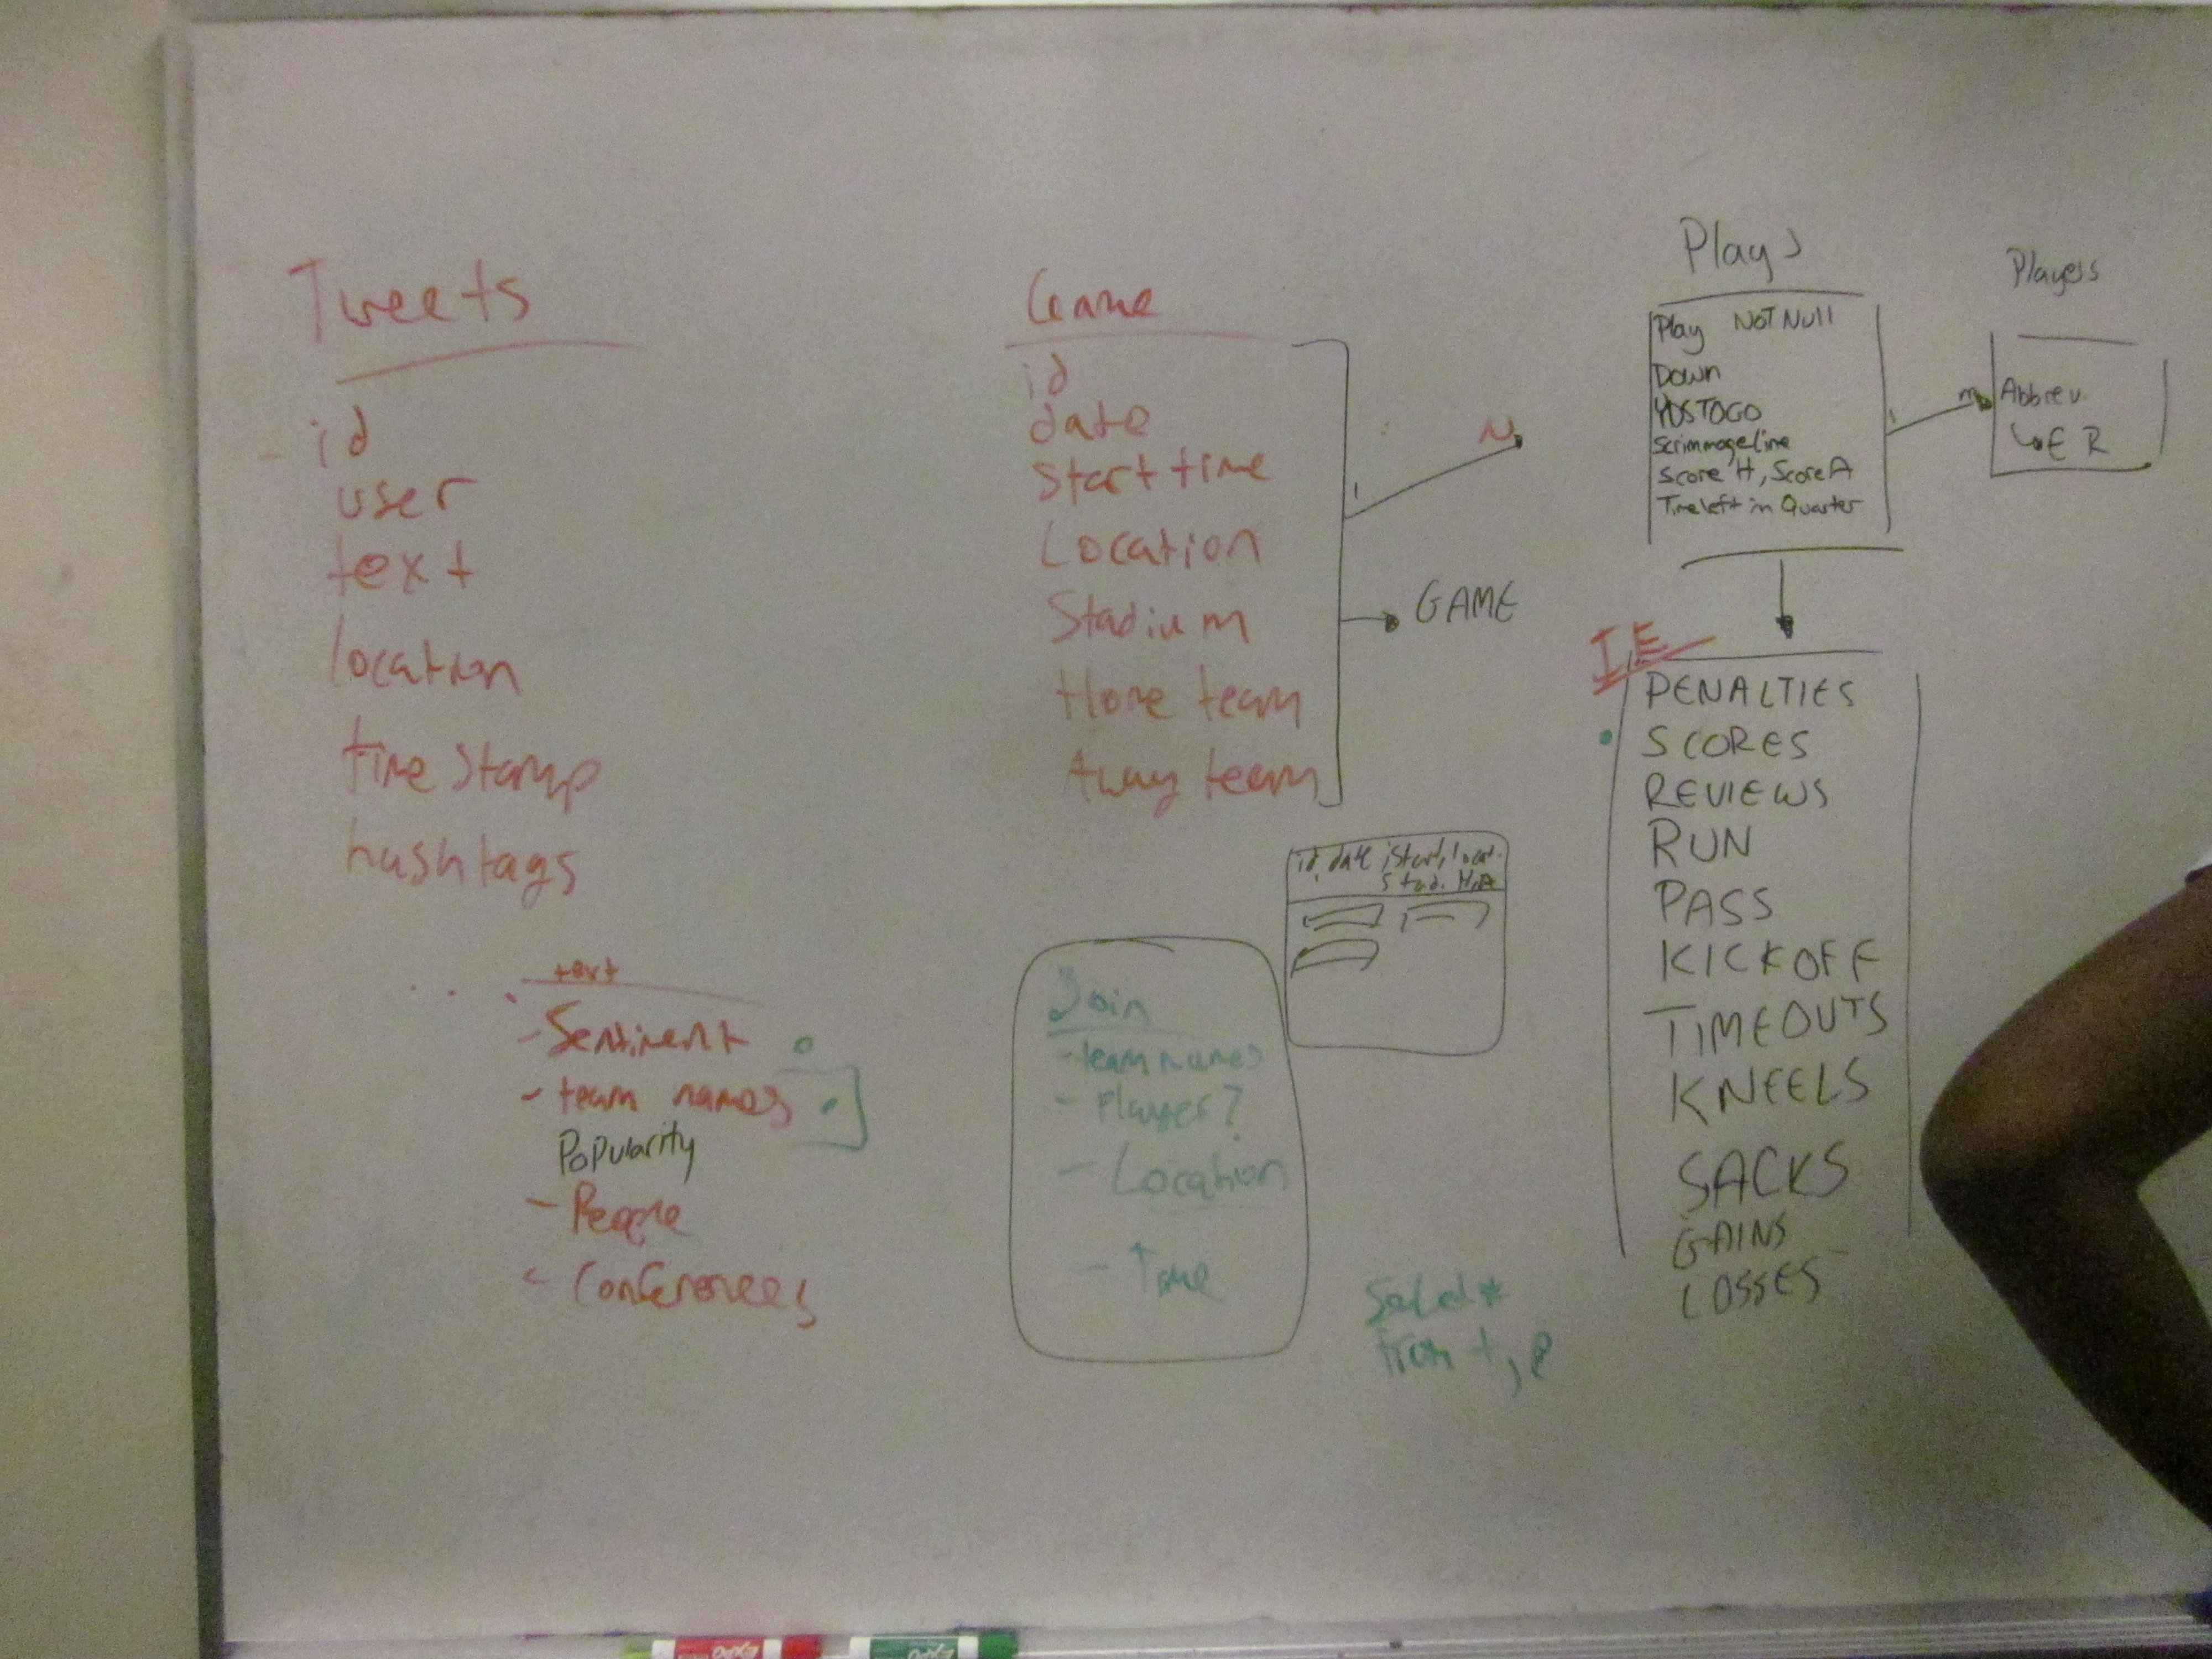 Tweets
id
user
text
location
time stamp
hashtags
text
- Sentiment
- team names
Popularity
- People
- Conferences
Game
id
date
Start time
Location
Stadium
Home team
Away team
1
N
GAME
id, date, Start, locat.
Stad. H, A
Join
- team names
- Player?
- Location
- Time
Select *
from t, e
Plays
Play NOT Null
Down
YDSTOGO
Scrimmageline
Score H, Score A
Time left in Quarter
1
m
Players
Abbrev.
ER
I.E
PENALTIES
SCORES
REVIEWS
RUN
PASS
KICKOFF
TIMEOUTS
KNEELS
SACKS
GAINS
LOSSES
EXPO
EXPO